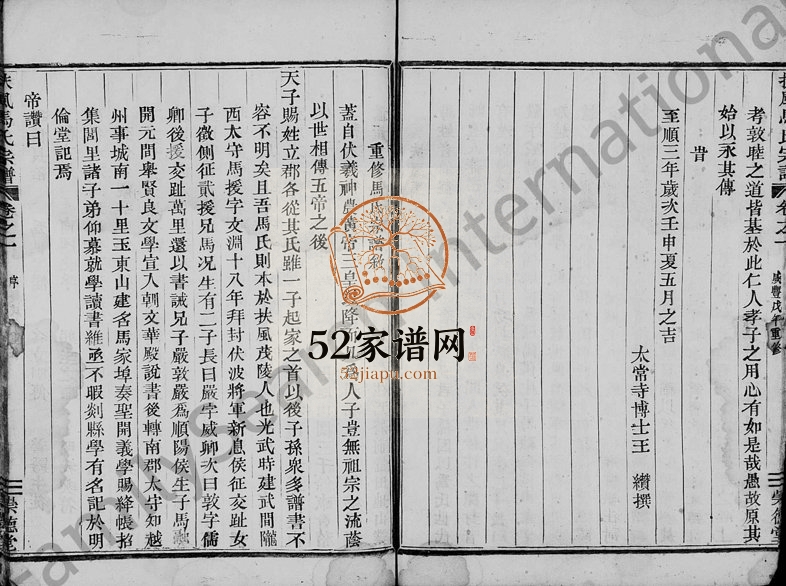 考敦睦之道皆基於此仁人孝子之用心有如是哉愚故原其
始以永其傳
旹
至順三年歲次壬申夏五月之吉
太常寺博士王　纘撰
卷之一
咸豐戊午重修
吳德堂
重修馬
蓋自伏羲神農黃帝三皇 降 人子豈無祖宗之流蔭
以世相傳五帝之後
天子賜姓立郡各從其氏雖一子起家之首以後子孫衆多譜書不
容不明矣且吾馬氏則本於扶風茂陵人也光武時建武間隴
西太守馬援字文淵十八年拜封伏波將軍新息侯征交趾女
子徵側征貳援兄馬况生有二子長曰嚴字威卿次曰敦字儒
卿後援交趾萬里還以書誡兄子嚴敦嚴爲順陽侯生子馬
開元問舉賢良文學宣入朝文華殿說書後轉南郡太守知越
州事城南一十里玉東山建名馬家埠奏聖開義學賜絳帳招
集閭里諸子弟仰慕就學讀書維丞不暇剡縣學有名記於明
倫堂記焉
帝讚曰
扶風馬氏宗譜
卷之一
序
吳德堂
52家谱网
52jiapu.com
FamilySearch International